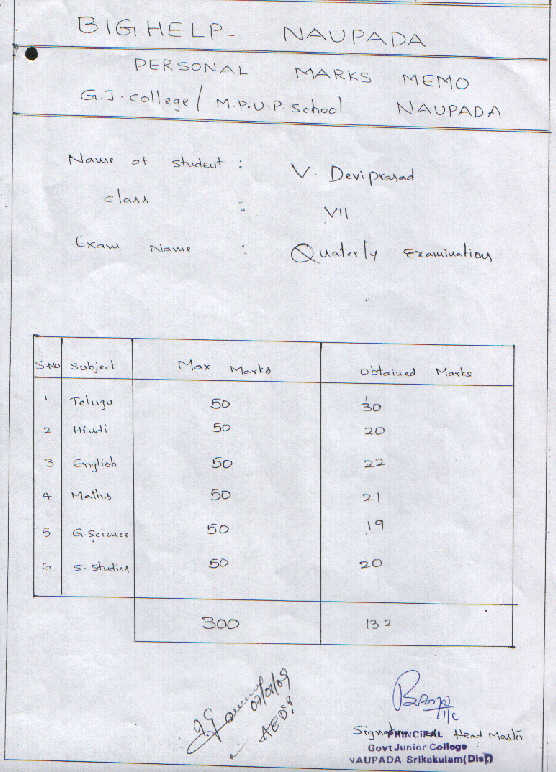 BIGHELP- NAUPADA
PERSONAL MARKS MEMO
G.J. college / M.P.U.P. School NAUPADA
Name of student : V. Deviprasad
class : VII
Exam Name : Quaterly Examination
S.No Subject Max Marks Obtained Marks
1 Telugu 50 30
2 Hindi 50 20
3 English 50 22
4 Maths 50 21
5 G.Science 50 19
6 S. Studies 50 20
300 132
Signature Head Master
PRINCIPAL
Govt Junior College
NAUPADA Srikakulam(Dist)